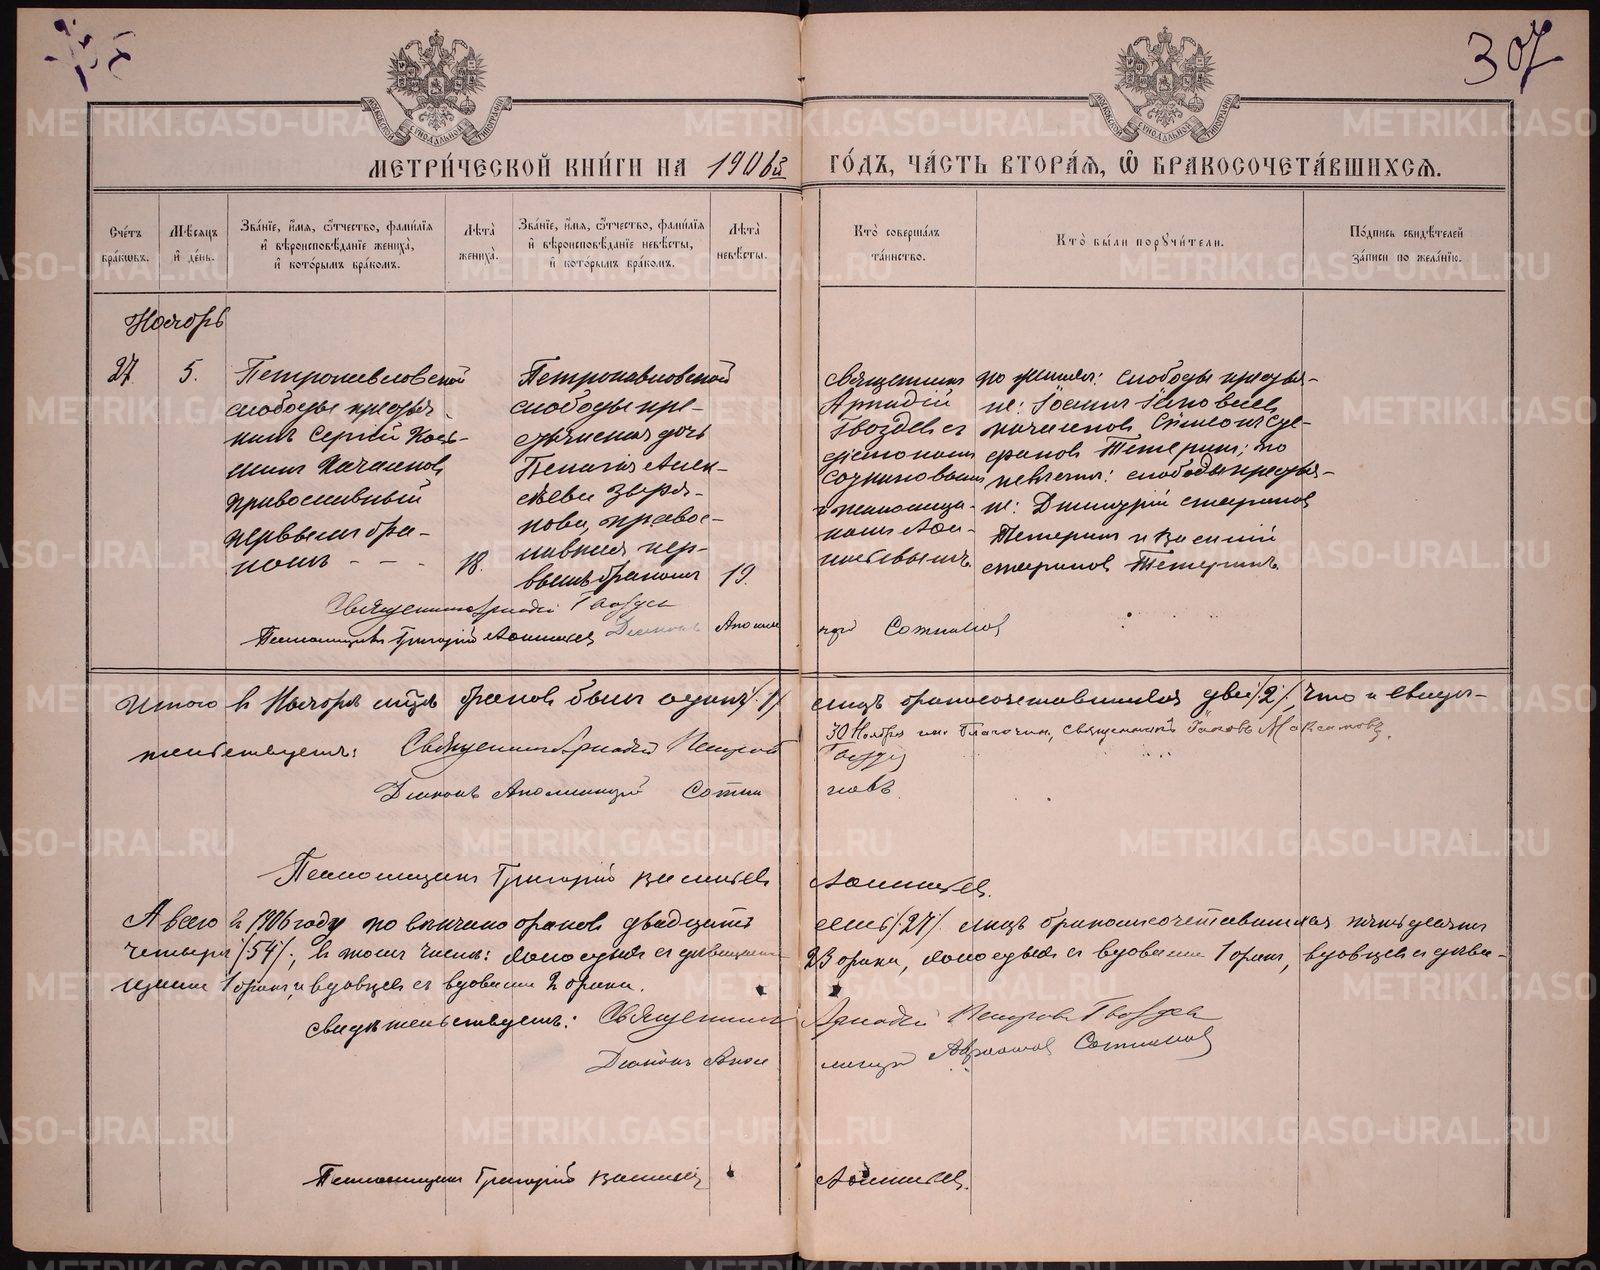 307
МЕТРИ́ЧЕСКОЙ КНИ́ГИ НА 1906й ГО́ДЪ, ЧА́СТЬ ВТОРА́Я, Ѡ҆ БРАКОСОЧЕТА́ВШИХСЯ.
Сче́тъ бра́кѡвъ.
Мѣ́сяцъ и҆ де́нь.
Зва́нїе, и҆́мя, ѻ҆́тчество, фами́лїя и҆ вѣроисповѣ́данїе жениха̀, и҆ кото́рымъ бра́комъ.
Лѣ́та жениха̀.
Зва́нїе, и҆́мя, ѻ҆́тчество, фами́лїя и҆ вѣроисповѣ́данїе невѣ́сты, и҆ кото́рымъ бра́комъ.
Лѣ́та невѣ́сты.
Кто̀ соверша́лъ та́инство.
Кто̀ бы́ли поручи́тели.
По́дпись свидѣ́телей за́писи по жела́нїю.
Ноябрь
27.
5.
Петропавловской
слободы крестья-
нинъ Сергій Козь-
минъ
православный
первымъ бра-
комъ - - -
18.
Петропавловской
слободы кре-
стьянская дочь
Пелагія Алек-
сѣева Зыря-
нова, правос-
лавная пер-
вымъ бракомъ
19.
Священникъ
Аркадій
Гвоздевъ съ
діакономъ
Сотниковымъ
и псаломщи-
комъ
по женихѣ: слободы крестья-
не: Іоаннъ
Симеонъ Сте-
фановъ Тетеринъ; по
невѣстѣ: слободы крестья-
не: Димитрій
Тетеринъ и Василій
Тетеринъ.
Священникъ Аркадій Гвоздевъ
Псаломщикъ Григорій Діаконъ Аполлинарій Сотниковъ
Итого въ Ноябрѣ мѣсяцѣ браковъ былъ одинъ /1/ лицъ бракосочетавшихся двѣ /2/, что и свидѣ-
тельствуетъ: Священникъ Аркадій Петровъ Гвоздевъ
30 Ноября Благочин. священникъ Іаковъ Максимовъ.
Діаконъ Аполлинарій Сотниковъ
Псаломщикъ Григорій Васильевъ
А всего въ 1906 году повѣнчано браковъ двадцать семь /27/ лицъ бракосочетавшихся пятьдесятъ
четыре /54/; въ томъ числѣ: холостыхъ съ дѣвицами 23 брака, холостыхъ съ вдовами 1 бракъ, вдовцевъ съ дѣви-
цами 1 бракъ, и вдовцевъ съ вдовами 2 брака.
Свидѣтельствуетъ: Священникъ Аркадій Петровъ Гвоздевъ
Діаконъ Аполлинарій Сотниковъ
Псаломщикъ Григорій Васильевъ
METRIKI.GASO-URAL.RU